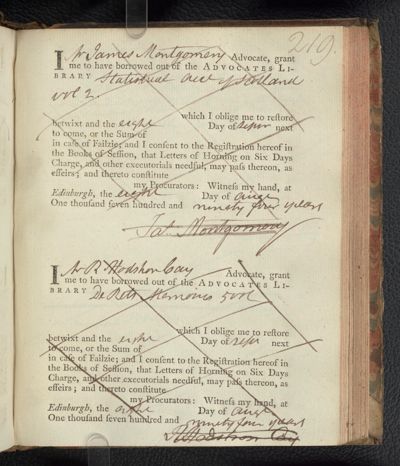 219.
I Mr James Montgomery Advocate, grant
me to have borrowed out of the ADVOCATES LI-
BRARY Statistical acct of Scotland
vol 2.
which I oblige me to restore
betwixt and the eight Day of Septr next
to come, or the Sum of
in case of Failzie; and I consent to the Registration hereof in
the Books of Session, that Letters of Horning on Six Days
Charge, and other executorials needful, may pass thereon, as
effeirs; and thereto constitute
my Procurators: Witness my hand, at
Edinburgh, the eight Day of augt
One thousand seven hundred and ninety four years
Jas. Montgomery
I Mr R Hodshon Cay Advocate, grant
me to have borrowed out of the ADVOCATES LI-
BRARY De Retz Memoires 5 vol
which I oblige me to restore
betwixt and the eight Day of Sepr next
to come, or the Sum of
in case of Failzie; and I consent to the Registration hereof in
the Books of Session, that Letters of Horning on Six Days
Charge, and other executorials needful, may pass thereon, as
effeirs; and thereto constitute
my Procurators: Witness my hand, at
Edinburgh, the eight Day of augt
One thousand seven hundred and ninety four years
R Hodshon Cay